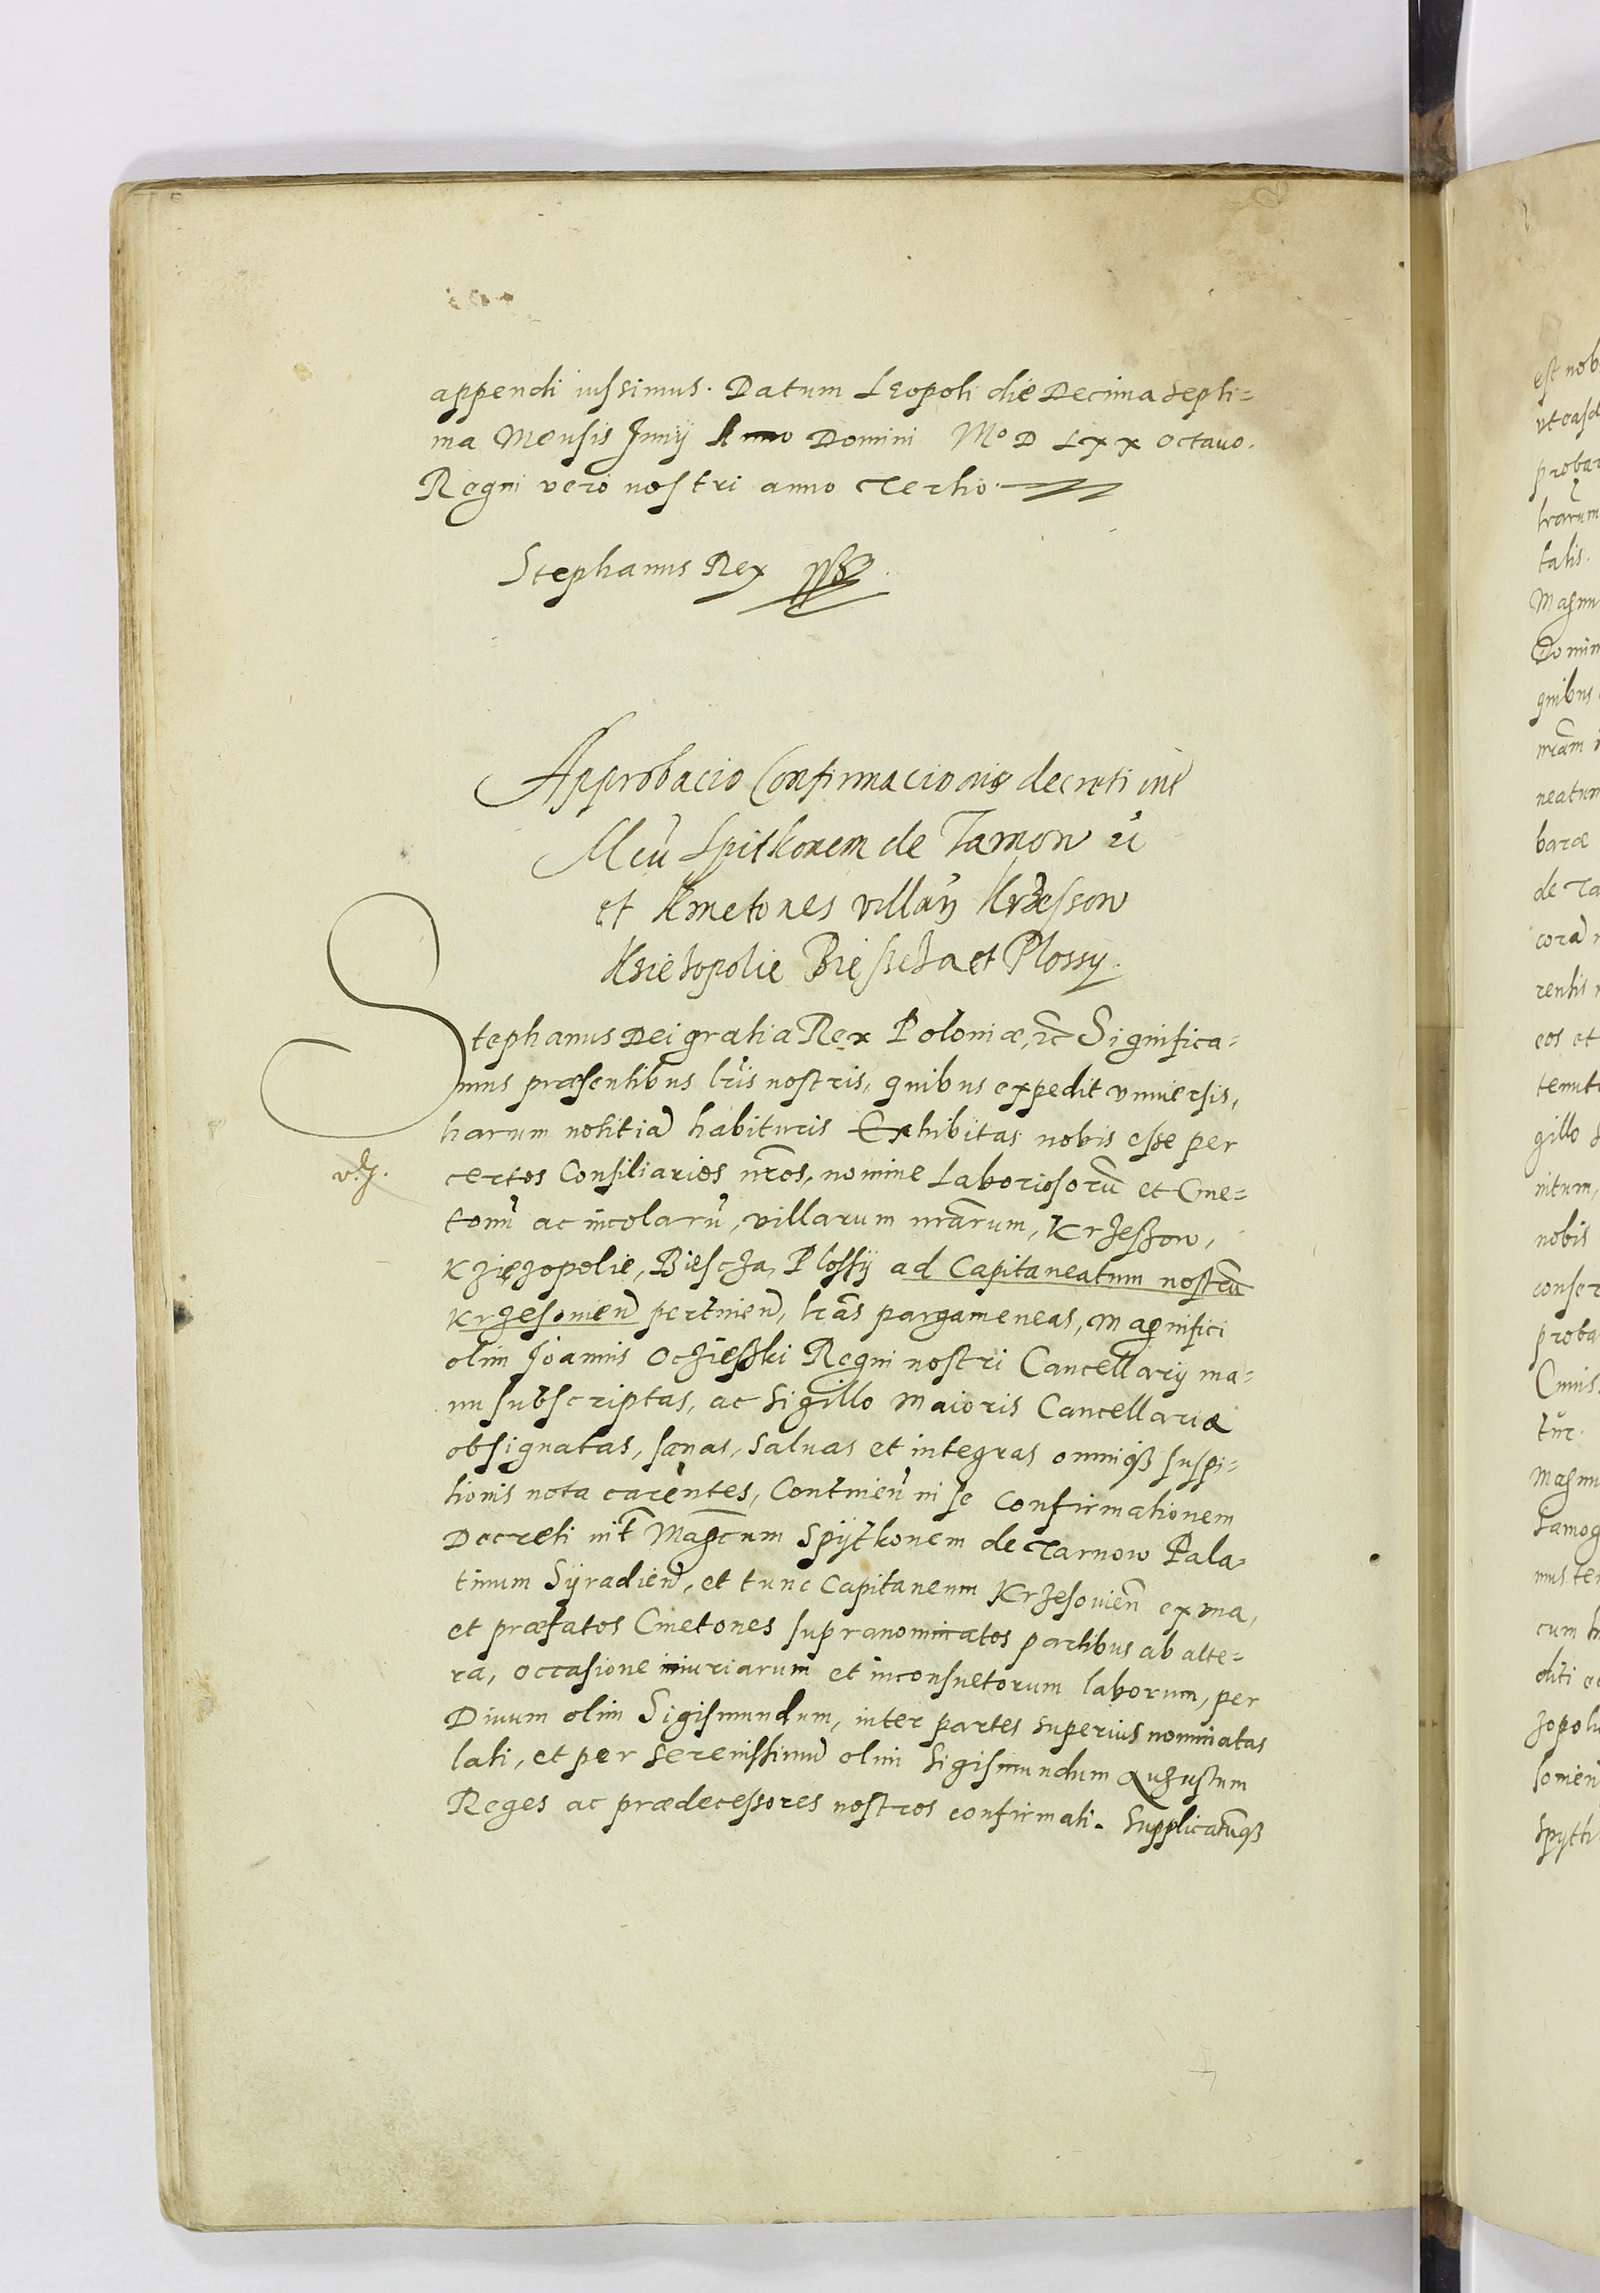 appendi iussimus. Datum Leopoli die Decima septi=
ma Mensis Junij Anno Domini Mº D Lxx octauo.
Regni vero nostri anno Tertio.
Stephanus Rex
Approbacio Confirmacionis decreti int
Mcū Spitkonem de Tarnow
et Kmetones villarū Krzesson
Ksiezopolie Biescza et Plossy.
Stephanus Dei gratia Rex Poloniæ, ec̃ Significa=
mus præsentibus lr̃is nostris, quibus expedit vniuersis,
harum notitiā habituris Exhibitas nobis esse per
certos Consiliarios nr̃os, nomine Laboriosorū et Cme=
tonū ac incolarū, villarum nrãrum, Krzeszow,
Kziezopolie, Biescza, Plossÿ ad Capitaneatum nostrũ
Krzesouien̄ pertinen̄, lrãs pargameneas, Magnifici
olim Joannis Oczieszki Regni nostri Cancellarij ma=
nu subscriptas, ac sigillo Maioris Cancellariæ
obsignatas, sanas, saluas et integras omniqʒ suspi=
tionis nota carentes, Continen̄ in se Confirmationem
Decreti int̃ Magc̃um Spÿtkonem de Tarnow Pala=
tinum Sÿradien̄, et tunc Capitaneum Krzesouien̄ ex vna,
et præfatos Cmetones supranominatos partibus ab alte=
ra, occasione iniuriarum et inconsuetorum laborum, per
Diuum olim Sigismundum, inter partes superius nominatas
lati, et per serenissimū olim Sigismundum Augustum
Reges ac prædecessores nostros confirmati. Supplicatũqʒ